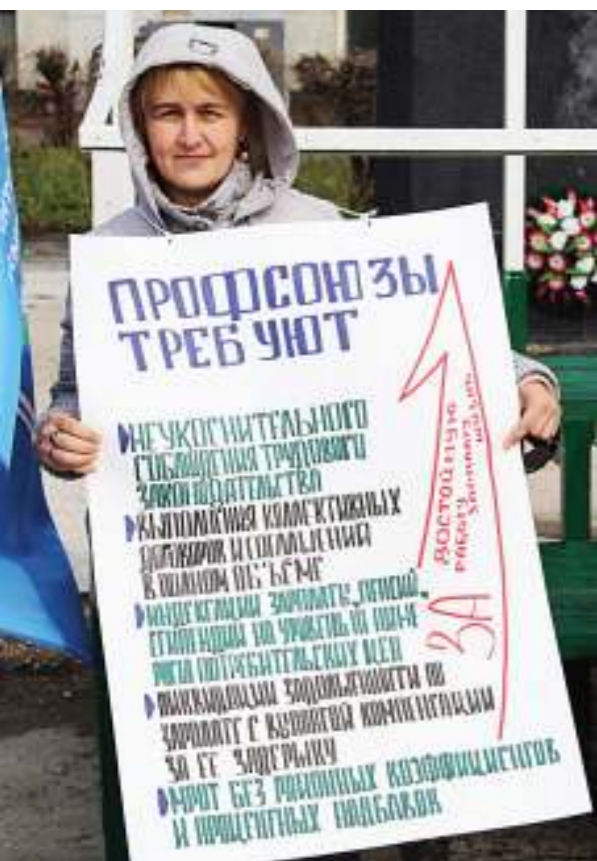 ПРОФСОЮЗЫ
ТРЕБУЮТ
НЕУКОСНИТЕЛЬНОГО
СОБЛЮДЕНИЯ ТРУДОВОГО
ЗАКОНОДАТЕЛЬСТВА
ВЫПОЛНЕНИЯ КОЛЛЕКТИВНЫХ
ДОГОВОРОВ И СОГЛАШЕНИЙ
В ПОЛНОМ ОБЪЕМЕ
ИНДЕКСАЦИИ ЗАРПЛАТЫ, ПЕНСИЙ,
СТИПЕНДИЙ НА УРОВЕНЬ
ПОТРЕБИТЕЛЬСКИХ ЦЕН
ЛИКВИДАЦИИ ЗАДОЛЖЕННОСТИ ПО
ЗАРПЛАТЕ С ВЫПЛАТОЙ КОМПЕНСАЦИИ
ЗА ЕЕ ЗАДЕРЖКУ
МРОТ БЕЗ РАЙОННЫХ КОЭФФИЦИЕНТОВ
И ПРОЦЕНТНЫХ НАДБАВОК
ЗА
ДОСТОЙНУЮ
РАБОТУ
ЗАРПЛАТУ
ЖИЗНЬ